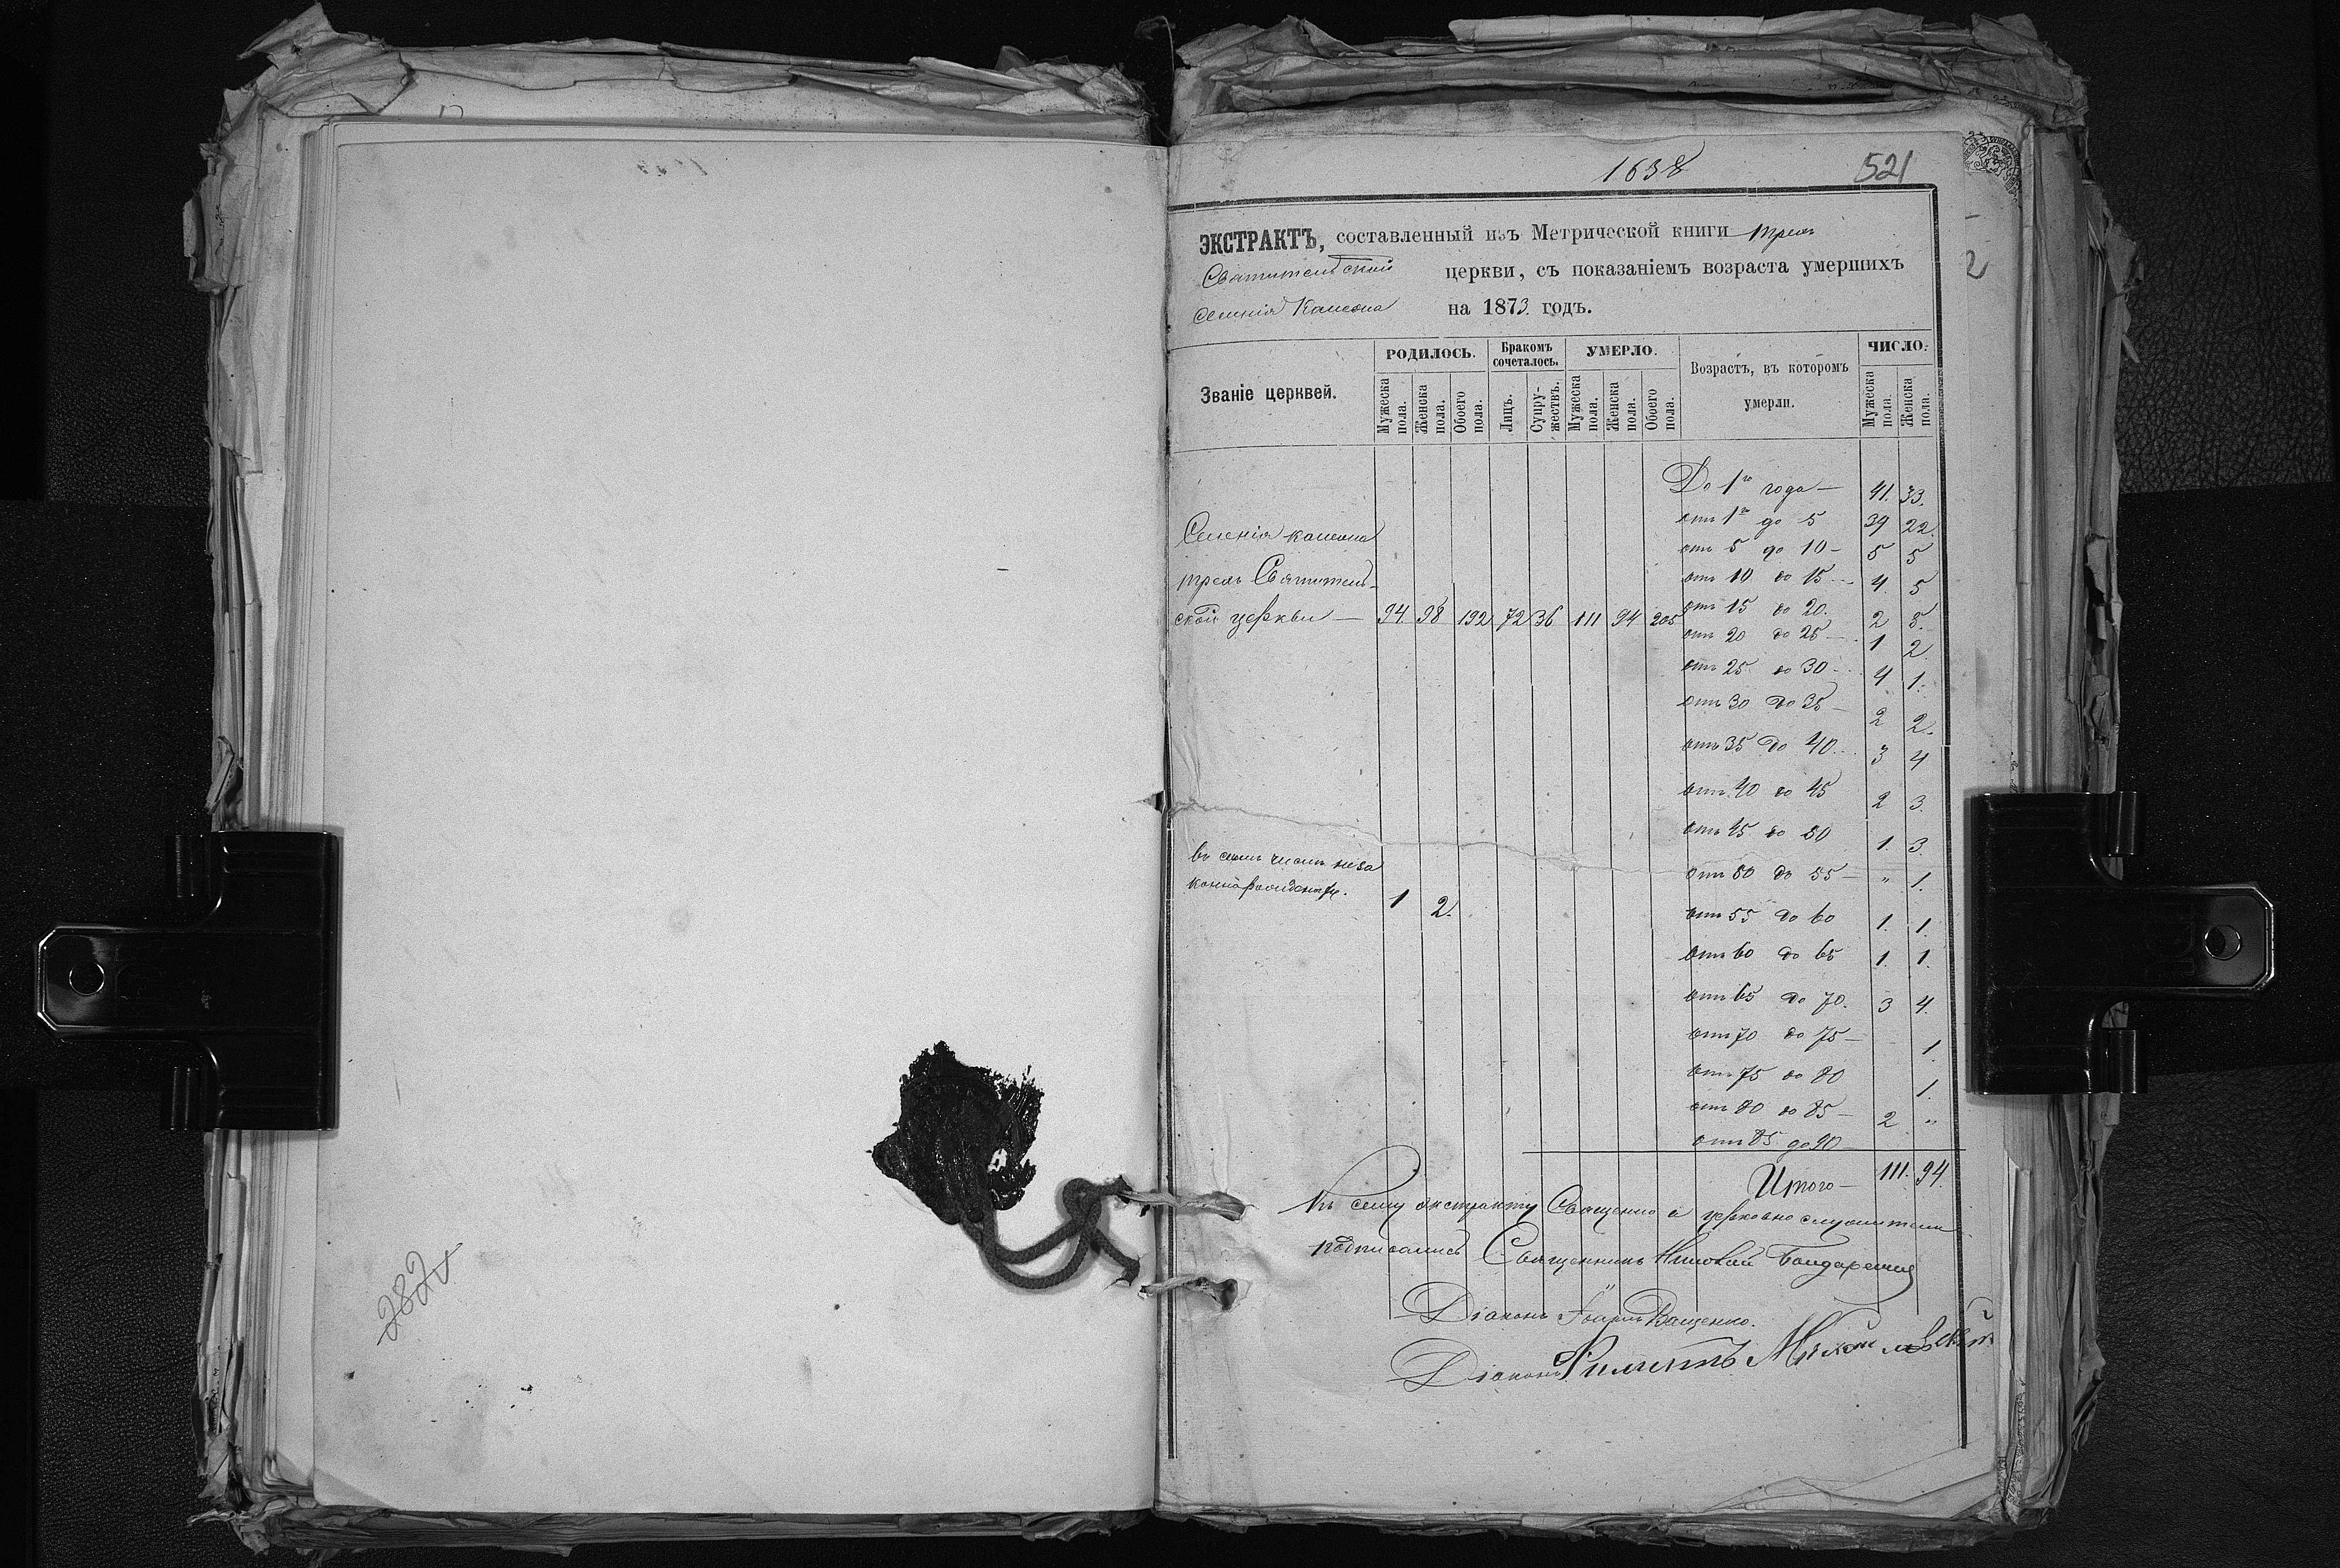 282
1638
521
2
ЭКСТРАКТЪ, составленный изъ Метрической книги трехъ
Святительской церкви, съ показаніемъ возраста умершихъ
селенія на 1873. годъ.
Званіе церквей.
РОДИЛОСЬ.
Мужеска пола.
Женска пола.
Обоего пола.
Бракомъ сочеталось.
Лицъ.
Супружествъ.
УМЕРЛО.
Мужеска пола.
Женска пола.
Обоего пола.
Возрастъ, въ которомъ
умерли.
ЧИСЛО.
Мужеска пола.
Женска пола.
Селенія
трехъ Святитель-
ской церкви — 94. 98 192 72 36 111 94 205
въ семъ числѣ неза
коннорожденныхъ. 1 2.
До 1го года — 41. 33.
отъ 1го до 5 39 22.
отъ 5 до 10 - 5 5
отъ 10 до 15 - 4. 5
отъ 15 до 20. 2 5.
отъ 20 до 25 - 1 2
отъ 25 до 30 - 4 1.
отъ 30 до 35 - 2 2.
отъ 35 до 40. 3 4
отъ 40 до 45 2 3.
отъ 45 до 50 1. 3.
отъ 50 до 55 — „ 1.
отъ 55 до 60 1. 1.
отъ 60 до 65 1. 1.
отъ 65 до 70. 3 4.
отъ 70 до 75 — 1.
отъ 75 до 80 1.
отъ 80 до 85 — 2 „
отъ 85 до 90
Итого — 111. 94.
Къ сему экстракту Священно и церковно служители
подписались Священникъ Бондаренко
Діаконъ Ващенко.
Діаконъ